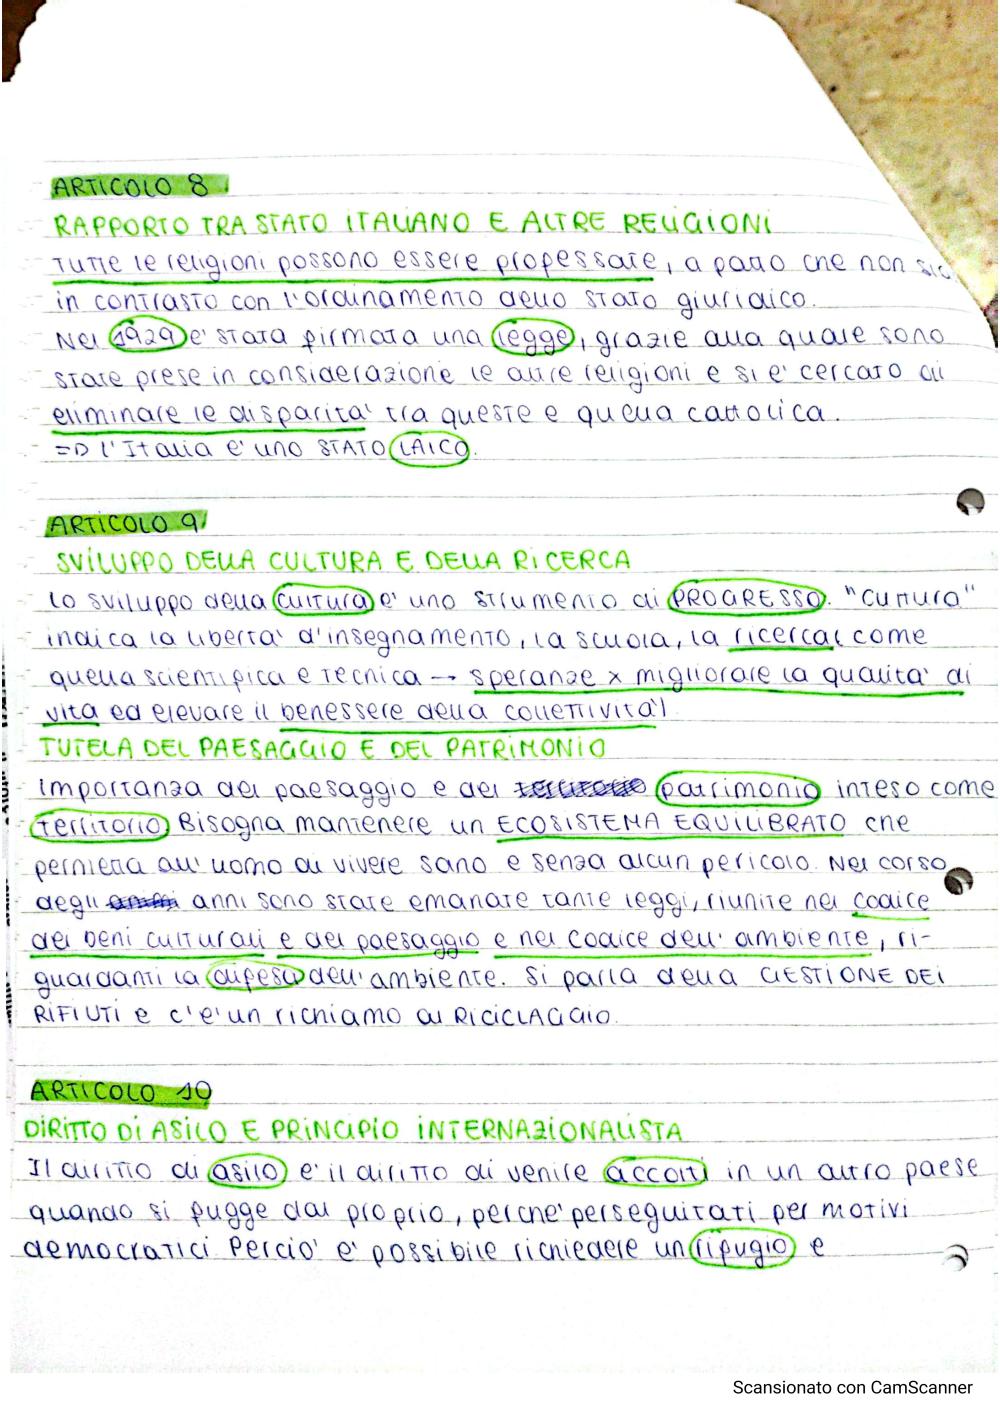 ARTICOLO 8
RAPPORTO TRA STATO ITALIANO E ALTRE RELIGIONI
Tutte le religioni possono essere professate, a patto che non sia
in contrasto con l'ordinamento dello stato giuridico.
Nel 1929 e' stata firmata una legge, grazie alla quale sono
state prese in considerazione le altre religioni e si e' cercato di
eliminare le disparita' tra queste e quella cattolica.
=D l'Italia e' uno STATO LAICO.
ARTICOLO 9
SVILUPPO DELLA CULTURA E DELLA RICERCA
Lo sviluppo della cultura e' uno strumento di PROGRESSO. "Cultura"
indica la liberta' d'insegnamento, la scuola, la ricerca( come
quella scientifica e tecnica → speranze x migliorare la qualita' di
vita ed elevare il benessere della collettivita')
TUTELA DEL PAESAGGIO E DEL PATRIMONIO
Importanza del paesaggio e del territorio patrimonio inteso come
territorio Bisogna mantenere un ECOSISTEMA EQUILIBRATO che
permetta all'uomo di vivere sano e senza alcun pericolo. Nel corso
degli anni sono state emanate tante leggi, riunite nel codice
dei beni culturali e del paesaggio e nel codice dell'ambiente, ri-
guardanti la difesa dell'ambiente. Si parla della GESTIONE DEI
RIFIUTI e c'e' un richiamo al RICICLAGGIO.
ARTICOLO 10
DIRITTO DI ASILO E PRINCIPIO INTERNAZIONALISTA
Il diritto di asilo e' il diritto di venire accolti in un altro paese
quando si fugge dal proprio, perche' perseguitati per motivi
democratici. Percio' e' possibile richiedere un rifugio e
Scansionato con CamScanner